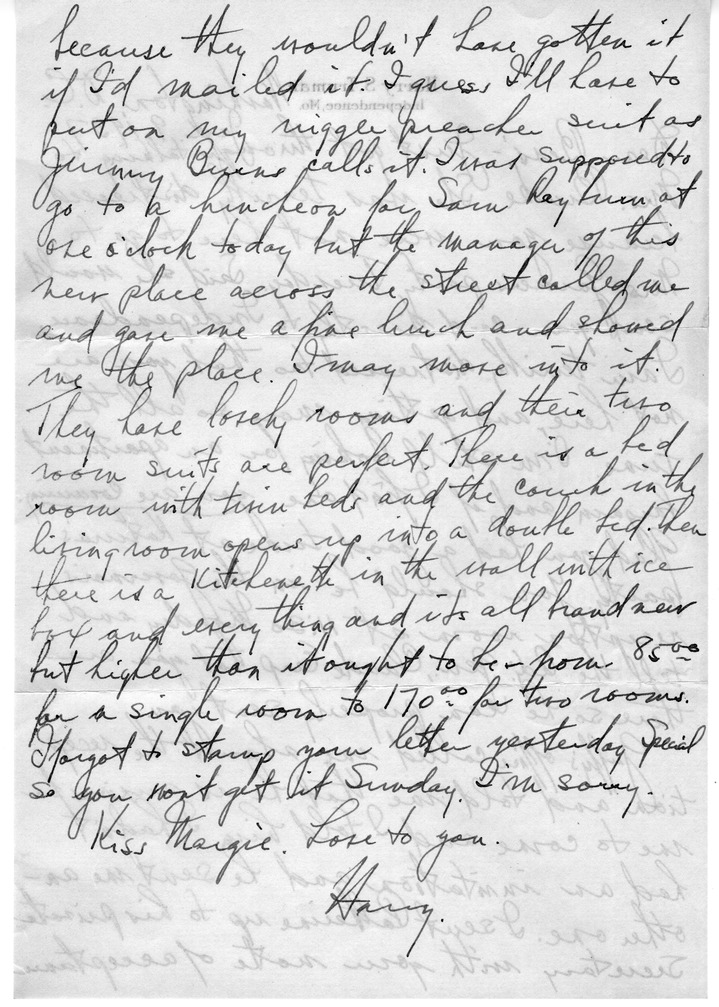 because they wouldn't have gotten it
if I'd mailed it. I guess I'll have to
put on my nigger preacher suit as
Jimmy Byrns calls it. I was supposed to
go to a luncheon for Sam Rayburn at
one o'clock today but the manager of this
new place across the street called me
and gave me a fine lunch and showed
me the place. I may move into it.
They have lovely rooms and their two
room suits are perfect. There is a bed
room with twin beds and the couch in the
living room opens up into a double bed. Then
there is a Kitcheneth in the wall with ice
box and every thing and its all brand new
but higher than it ought to be - from 85⁰⁰
for a single room to 170⁰⁰ for two rooms.
I forgot to stamp your letter yesterday Special
so you won't get it Sunday. I'm sorry.
Kiss Margie. Love to you.
Harry.